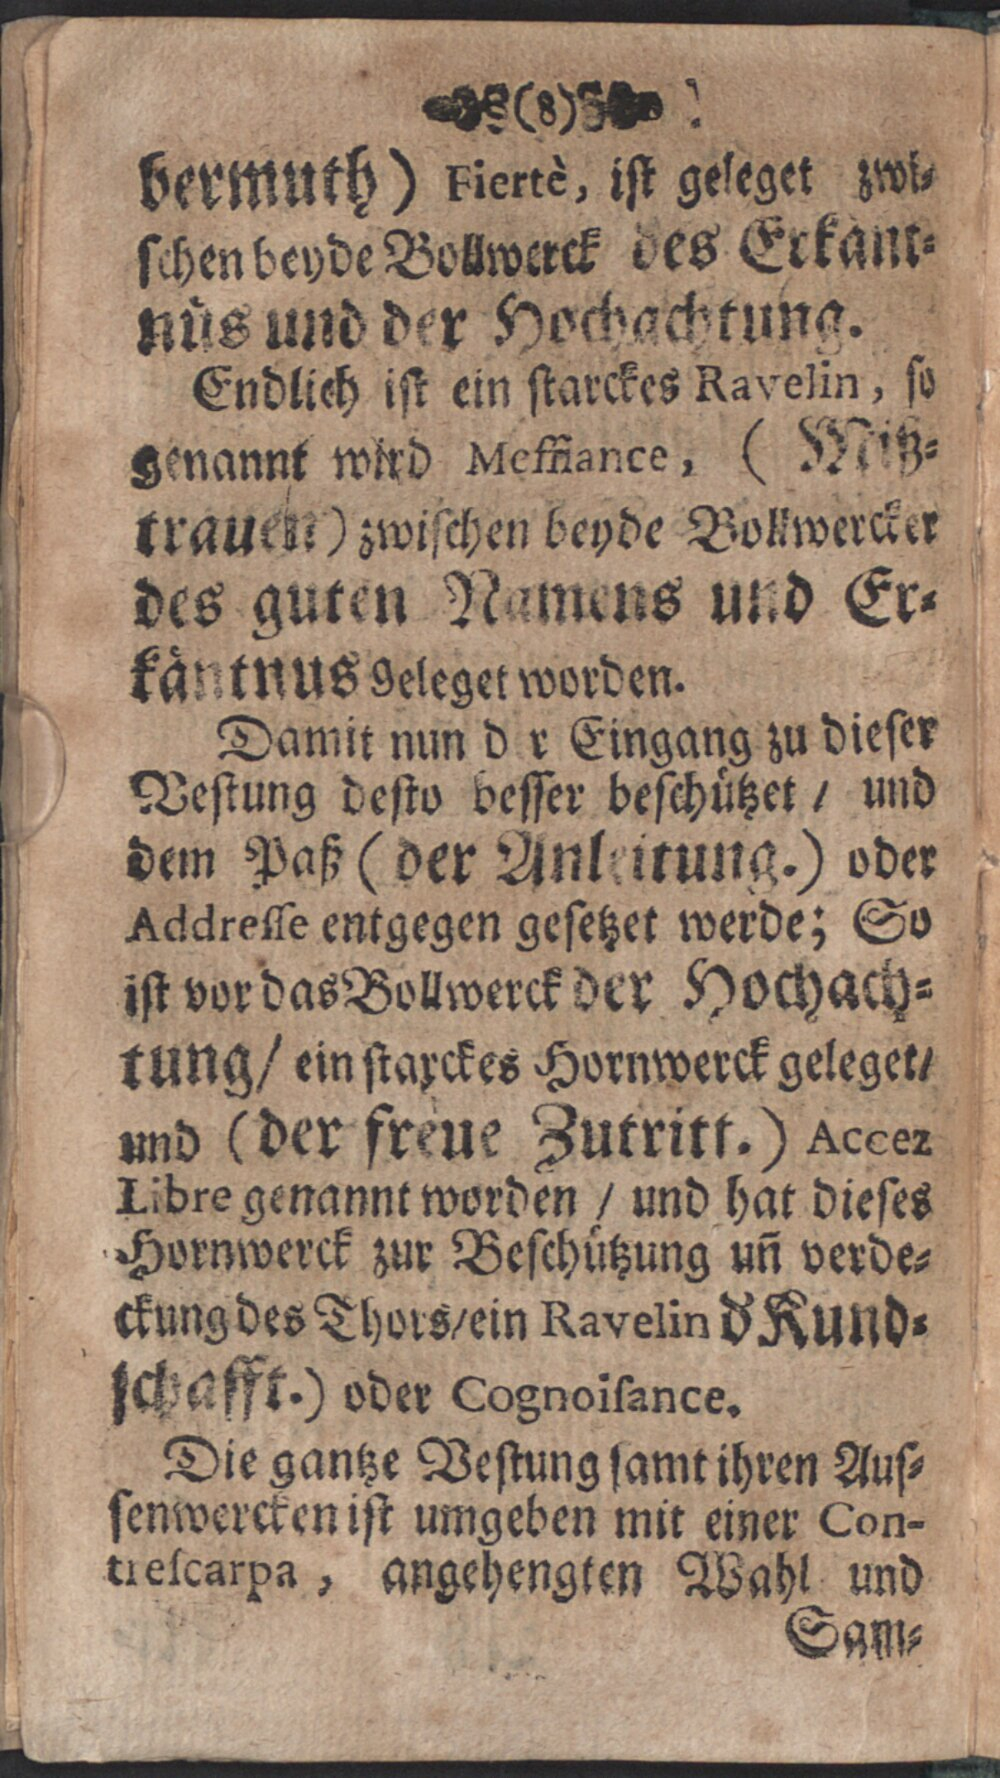 (8)
bermuth) Fiertè, ist geleget zwi-
schen beyde Bollwerck des Erkänt-
nüs und der Hochachtung.
Endlich ist ein starckes Ravelin, so
genannt wird Meffiance, (Mitz-
trauen) zwischen beyde Bollwercker
des guten Namens und Er-
käntnus geleget worden.
Damit nun d r Eingang zu dieser
Vestung desto besser beschützet / und
dem Paß (der Anleitung.) oder
Addresse entgegen gesetzet werde; So
ist vor das Bollwerck der Hochach-
tung/ ein starckes Hornwerck geleget/
und (der freue Zutritt.) Accez
Libre genannt worden / und hat dieses
Hornwerck zur Beschützung uñ verde-
ckung des Thors/ein Ravelin d' Kund-
schafft.) oder Cognoisance.
Die gantze Vestung samt ihren Aus-
senwercken ist umgeben mit einer Con-
trescarpa, angehengten Wahl und
Sam-